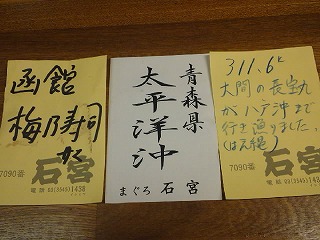 函館
梅乃寿司
7090番
石宮
電話 03(3549)1438
青森県
太平洋沖
まぐろ 石宮
311.6k
大間の長宝丸
が八戸沖まで
行き漁りました。
(はえ縄)
7090番
石宮
電話 03(3549)1438